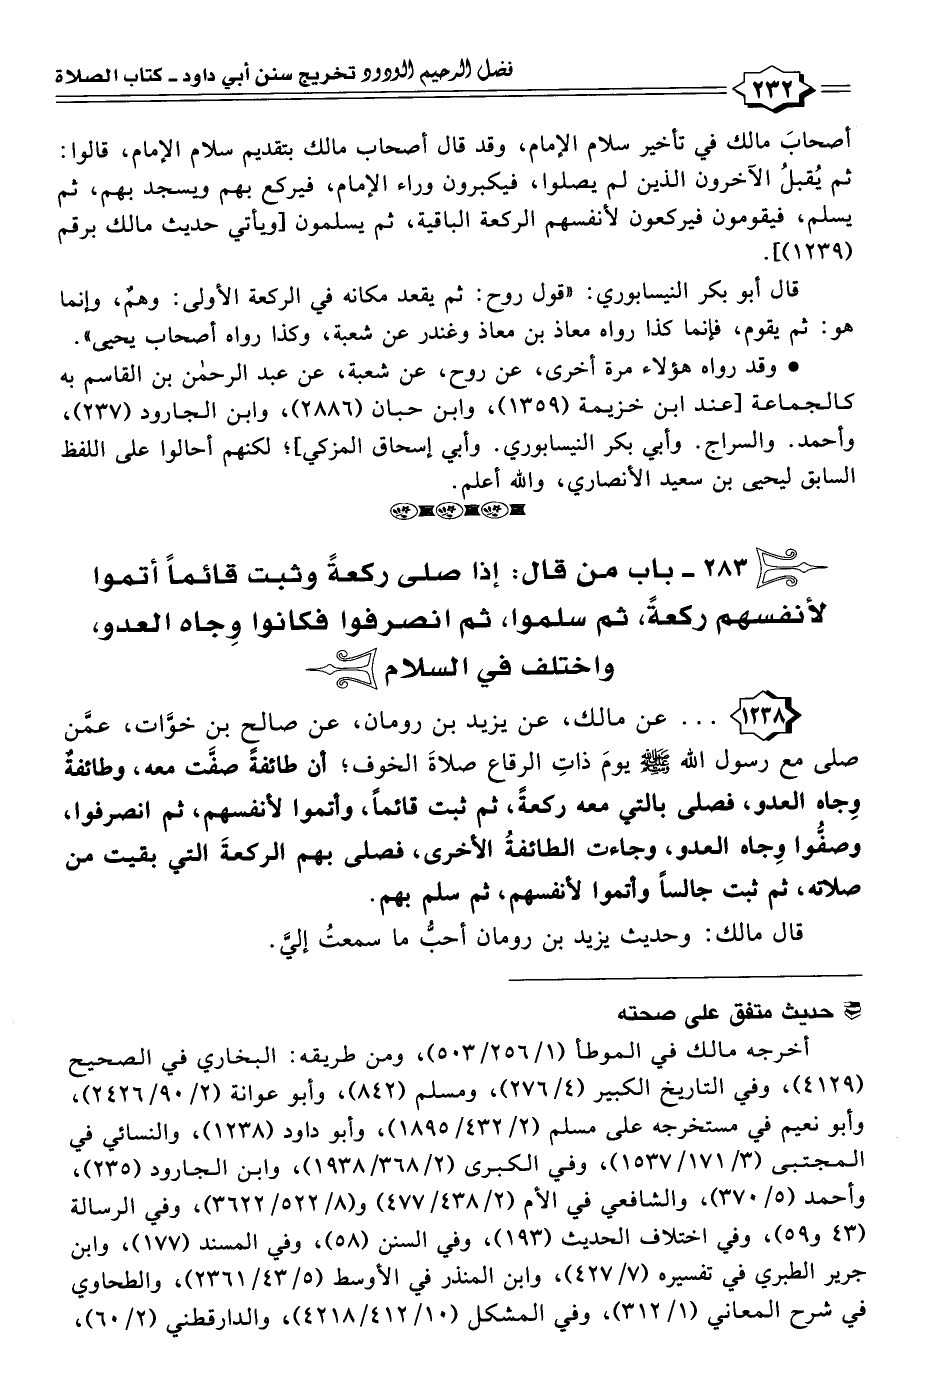 ٢٣٢
فضل الرحيم الودود تخريج سنن أبي داود ـ كتاب الصلاة
أصحابَ مالك في تأخير سلام الإمام، وقد قال أصحاب مالك بتقديم سلام الإمام، قالوا:
ثم يُقبلُ الآخرون الذين لم يصلوا، فيكبرون وراء الإمام، فيركع بهم ويسجد بهم، ثم
يسلم، فيقومون فيركعون لأنفسهم الركعة الباقية، ثم يسلمون [ويأتي حديث مالك برقم
(١٢٣٩)].
قال أبو بكر النيسابوري: «قول روح: ثم يقعد مكانه في الركعة الأولى: وهمٌ، وإنما
هو: ثم يقوم، فإنما كذا رواه معاذ بن معاذ وغندر عن شعبة، وكذا رواه أصحاب يحيى».
• وقد رواه هؤلاء مرة أخرى، عن روح، عن شعبة، عن عبد الرحمٰن بن القاسم به
كالجماعة [عند ابن خزيمة (١٣٥٩)، وابن حبان (٢٨٨٦)، وابن الجارود (٢٣٧)،
وأحمد. والسراج. وأبي بكر النيسابوري. وأبي إسحاق المزكي]؛ لكنهم أحالوا على اللفظ
السابق ليحيى بن سعيد الأنصاري، والله أعلم.
٢٨٣ ـ باب من قال: إذا صلى ركعةً وثبت قائماً أتموا
لأنفسهم ركعةً، ثم سلموا، ثم انصرفوا فكانوا وِجاه العدو،
واختلف في السلام
١٢٣٨ ... عن مالك، عن يزيد بن رومان، عن صالح بن خوَّات، عمَّن
صلى مع رسول الله ﷺ يومَ ذاتِ الرقاع صلاةَ الخوف؛ أن طائفةً صفَّت معه، وطائفةٌ
وِجاه العدو، فصلى بالتي معه ركعةً، ثم ثبت قائماً، وأتموا لأنفسهم، ثم انصرفوا،
وصفُّوا وِجاه العدو، وجاءت الطائفةُ الأخرى، فصلى بهم الركعةَ التي بقيت من
صلاته، ثم ثبت جالساً وأتموا لأنفسهم، ثم سلم بهم.
قال مالك: وحديث يزيد بن رومان أحبُّ ما سمعتُ إليَّ.
حديث متفق على صحته
أخرجه مالك في الموطأ (١/ ٢٥٦/ ٥٠٣)، ومن طريقه: البخاري في الصحيح
(٤١٢٩)، وفي التاريخ الكبير (٤/ ٢٧٦)، ومسلم (٨٤٢)، وأبو عوانة (٢/ ٩٠/ ٢٤٢٦)،
وأبو نعيم في مستخرجه على مسلم (٢/ ٤٣٢/ ١٨٩٥)، وأبو داود (١٢٣٨)، والنسائي في
المجتبى (٣/ ١٧١/ ١٥٣٧)، وفي الكبرى (٢/ ٣٦٨/ ١٩٣٨)، وابن الجارود (٢٣٥)،
وأحمد (٥/ ٣٧٠)، والشافعي في الأم (٢/ ٤٣٨/ ٤٧٧) و(٨/ ٥٢٢/ ٣٦٢٢)، وفي الرسالة
(٤٣ و٥٩)، وفي اختلاف الحديث (١٩٣)، وفي السنن (٥٨)، وفي المسند (١٧٧)، وابن
جرير الطبري في تفسيره (٧/ ٤٢٧)، وابن المنذر في الأوسط (٥/ ٤٣/ ٢٣٦١)، والطحاوي
في شرح المعاني (١/ ٣١٢)، وفي المشكل (١٠/ ٤١٢/ ٤٢١٨)، والدارقطني (٢/ ٦٠)،